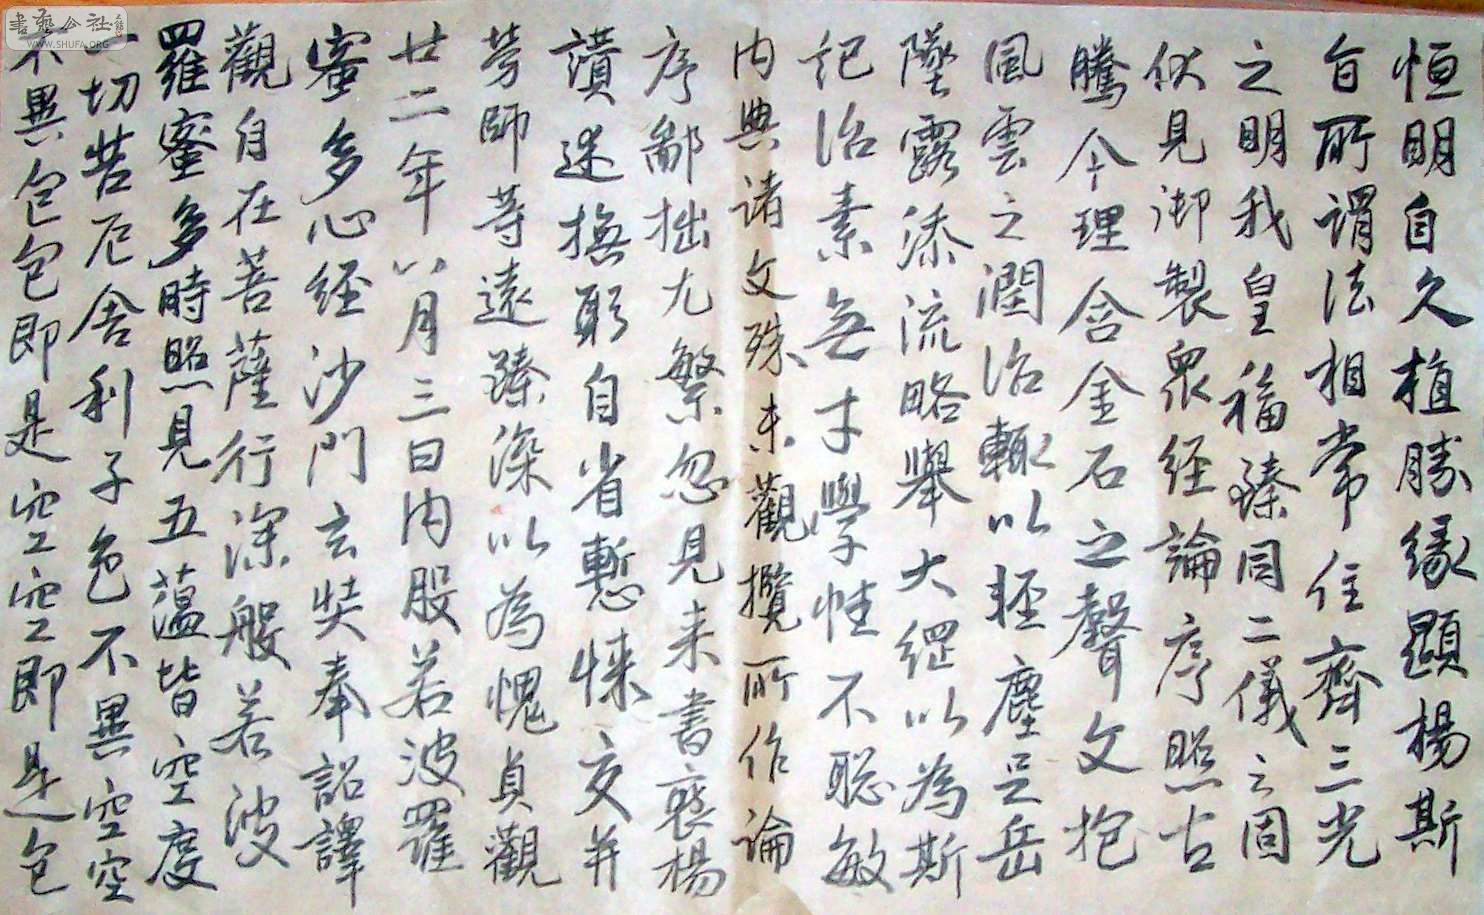 恒明自久植勝緣顯揚斯
旨所謂法相常住齊三光
之明我皇福臻同二儀之固
伏見御製眾经論序照古
騰今理含金石之聲文抱
風雲之潤治輒以輕塵足岳
墜露添流略舉大綱以為斯
記治素無才學性不聰敏
内典諸文殊未觀攬所作論
序鄙拙尤繁忽見来書褒揚
讚述撫躬自省慙悚交并
勞師等遠臻深以為愧貞觀
廿二年八月三日内般若波羅
蜜多心经沙門玄奘奉詔譯
觀自在菩薩行深般若波
羅蜜多時照見五蘊皆空度
一切苦厄舍利子色不異空空
不異色色即是空空即是色
書藝公社
WWW.SHUFA.ORG